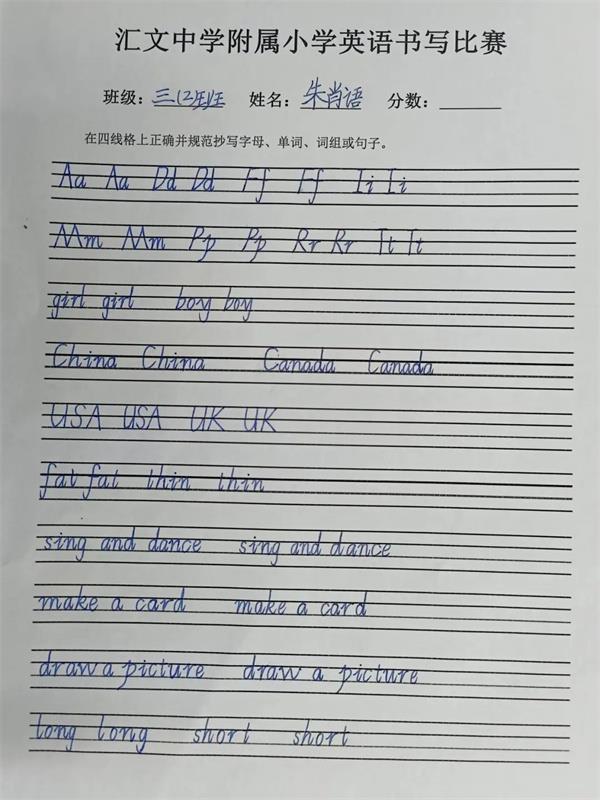 汇文中学附属小学英语书写比赛
班级：三(2)班 姓名：朱肖语 分数：
在四线格上正确并规范抄写字母、单词、词组或句子。
Aa Aa Dd Dd Ff Ff Ii Ii
Mm Mm Pp Pp Rr Rr Tt Tt
girl girl boy boy
China China Canada Canada
USA USA UK UK
fat fat thin thin
sing and dance sing and dance
make a card make a card
draw a picture draw a picture
long long short short